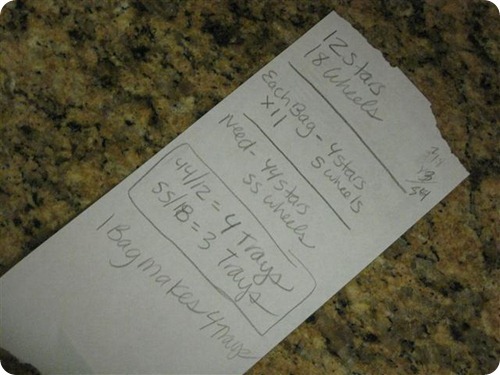 12 stars
18 wheels
Each Bag - 4 stars
x11 5 wheels
Need - 44 stars
55 wheels
44/12 = 4 Trays
55/18 = 3 Trays
1 Bag makes 4 Trays